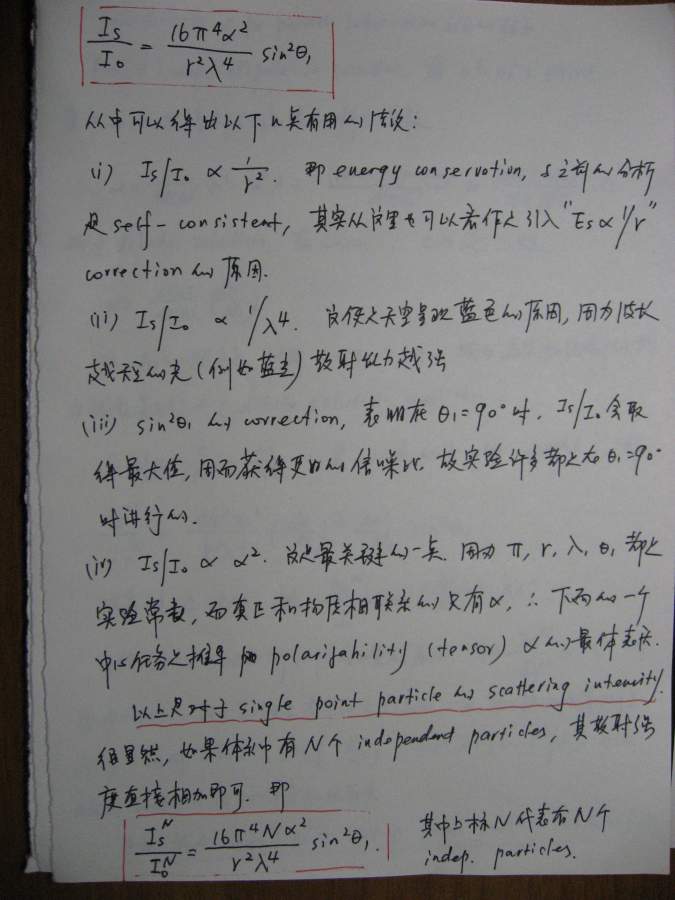 Is/I₀ = 16π⁴α²/r²λ⁴ sin²θ₁
从中可以得出以下几点有用的结论:
(i) Is/I₀ ∝ 1/r². 即 energy conservation, 与之前的分析
是 self-consistent, 其实从这里也可以看作是引入"Es ∝ 1/r"
correction 的原因.
(ii) Is/I₀ ∝ 1/λ⁴. 这便是天空呈现蓝色的原因, 因为波长
越短的光(例如蓝光)散射能力越强
(iii) sin²θ₁ 的 correction, 表明在 θ₁=90°时, Is/I₀ 会取
得最大值, 因而获得更好的信噪比. 故实验许多都是在 θ₁=90°
时进行的.
(iv) Is/I₀ ∝ α². 这是最关键的一点. 因为 π, r, λ, θ₁ 都是
实验常数, 而真正和物质相联系的只有α, ∴ 下面的一个
中心任务是推导 polarizability (tensor) α 的具体表示.
以上是对于 single point particle 的 scattering intensity.
很显然, 如果体系中有 N 个 independent particles, 其散射强
度直接相加即可. 即
Is^N/I₀^N = 16π⁴Nα²/r²λ⁴ sin²θ₁. 其中上标N代表有N个
indep. particles.